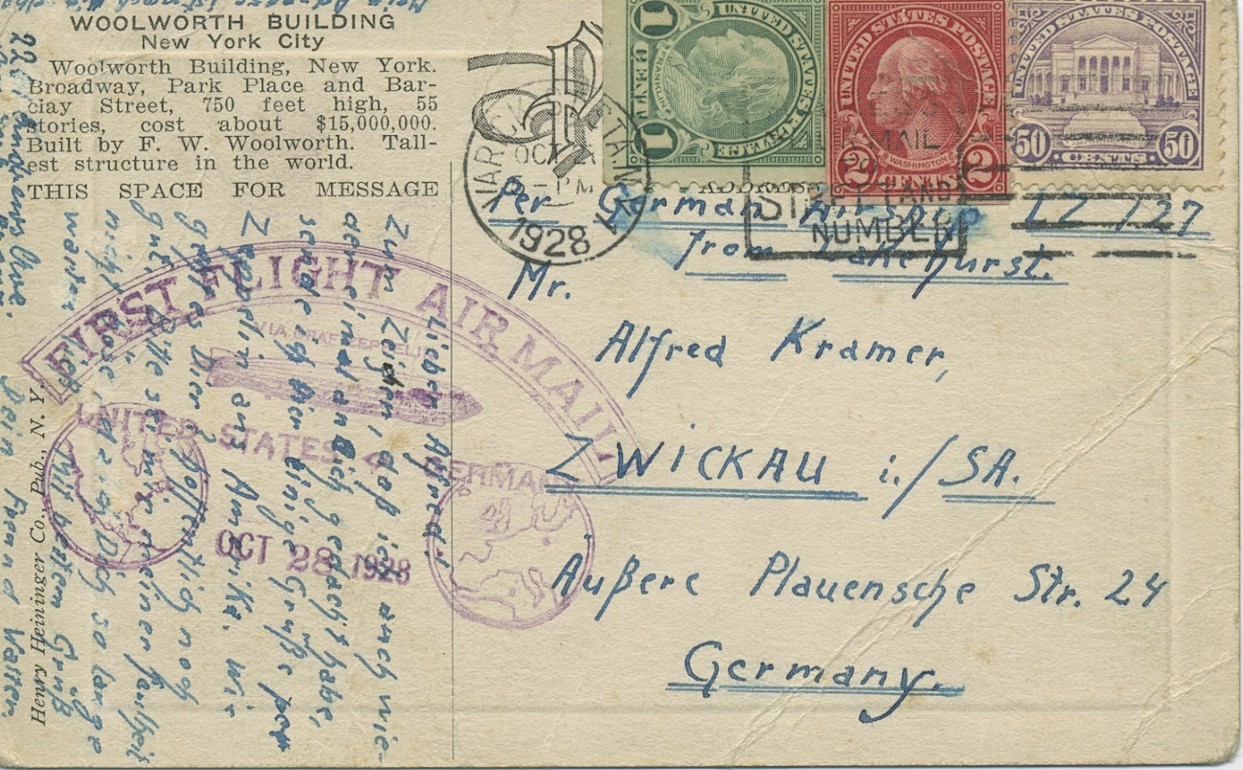 WOOLWORTH BUILDING
New York City
Woolworth Building, New York.
Broadway, Park Place and Bar-
clay Street, 750 feet high, 55
stories, cost about $15,000,000.
Built by F. W. Woolworth. Tall-
est structure in the world.
THIS SPACE FOR MESSAGE
Lieber Alfred!
Zum Zeichen, daß ich auch wie-
der einmal an Dich gedacht habe,
sende ich Dir einige Grüße per
Zeppelin aus Amerika. Wie
geht es Dir? Hoffentlich noch
gut. Bitte sei mir meiner Faulheit
nicht böse, Dich so lange
warten
Mit besten Gruß
Dein Freund
Henry Heininger Co., Pub., N. Y.
FIRST FLIGHT AIR MAIL
VIA GRAF ZEPPELIN
UNITED STATES
GERMANY
OCT 28 1928
VARICK
OCT
PM
1928
N.Y.
MAIL
STREET AND
NUMBER
UNITED STATES POSTAGE
FRANKLIN
1 CENT 1
UNITED STATES POSTAGE
WASHINGTON
2 CENTS 2
UNITED STATES POSTAGE
50 CENTS 50
Per German Airship LZ 127
from Lakehurst.
Mr.
Alfred Kramer,
ZWICKAU i./SA.
Äußere Plauensche Str. 24
Germany.